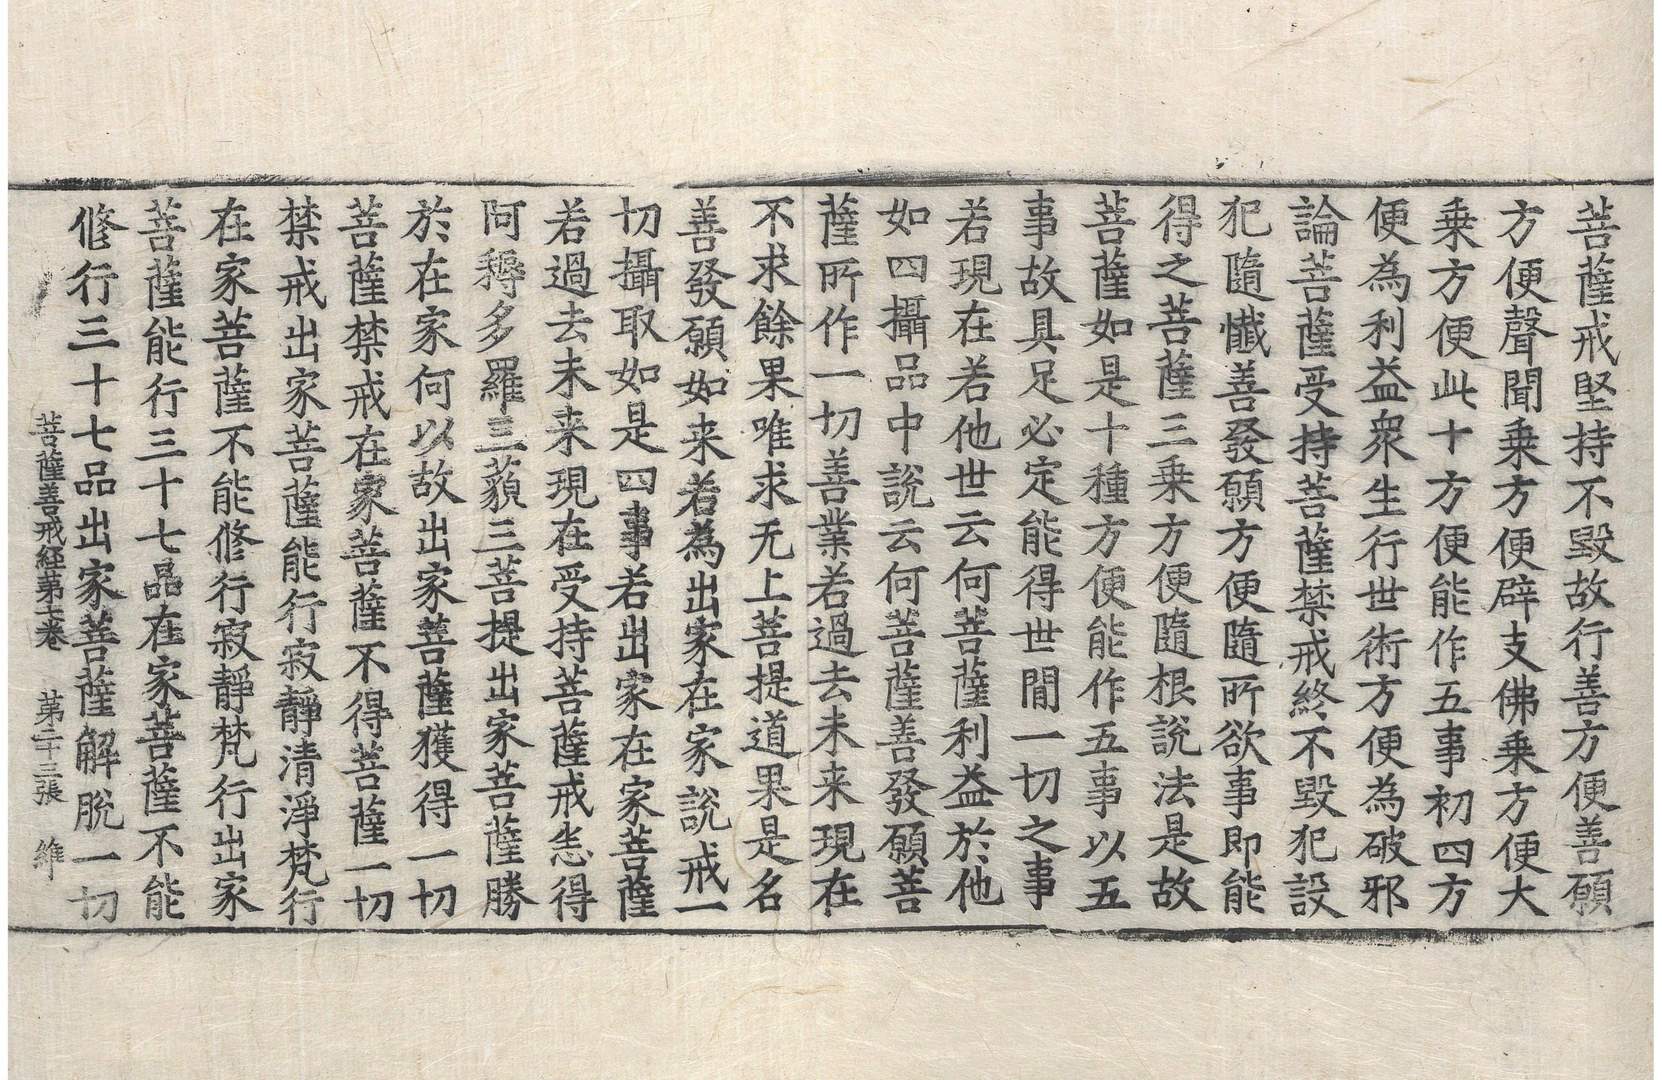 菩薩戒堅持不毀故行善方便善願
方便聲聞乗方便辟支佛乗方便大
乗方便此十方便能作五事初四方
便為利益衆生行世術方便為破邪
論菩薩受持菩薩禁戒終不毀犯設
犯隨懺善發願方便隨所欲事即能
得之菩薩三乗方便隨根說法是故
菩薩如是十種方便能作五事以五
事故具足必定能得世間一切之事
若現在若他世云何菩薩利益於他
如四攝品中說云何菩薩善發願菩
薩所作一切善業若過去未来現在
不求餘果唯求无上菩提道果是名
善發願如来若為出家在家說戒一
切攝取如是四事若出家在家菩薩
若過去未来現在受持菩薩戒悉得
阿耨多羅三藐三菩提出家菩薩勝
於在家何以故出家菩薩獲得一切
菩薩禁戒在家菩薩不得菩薩一切
禁戒出家菩薩能行寂靜清淨梵行
在家菩薩不能修行寂靜梵行出家
菩薩能行三十七品在家菩薩不能
修行三十七品出家菩薩解脫一切
菩薩善戒経第七卷 第二十三張 維